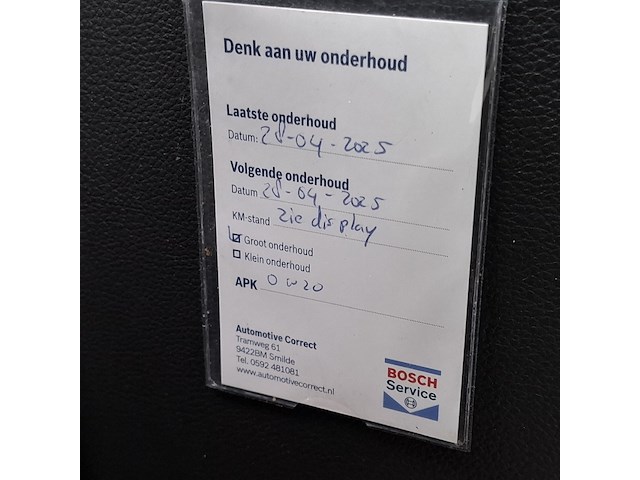 Denk aan uw onderhoud
Laatste onderhoud
Datum: 28-04-2025
Volgende onderhoud
Datum 28-04-2025
KM-stand zie display
Groot onderhoud
Klein onderhoud
APK 0w20
Automotive Correct
Tramweg 61
9422BM Smilde
Tel. 0592 481081
www.automotivecorrect.nl
BOSCH
Service